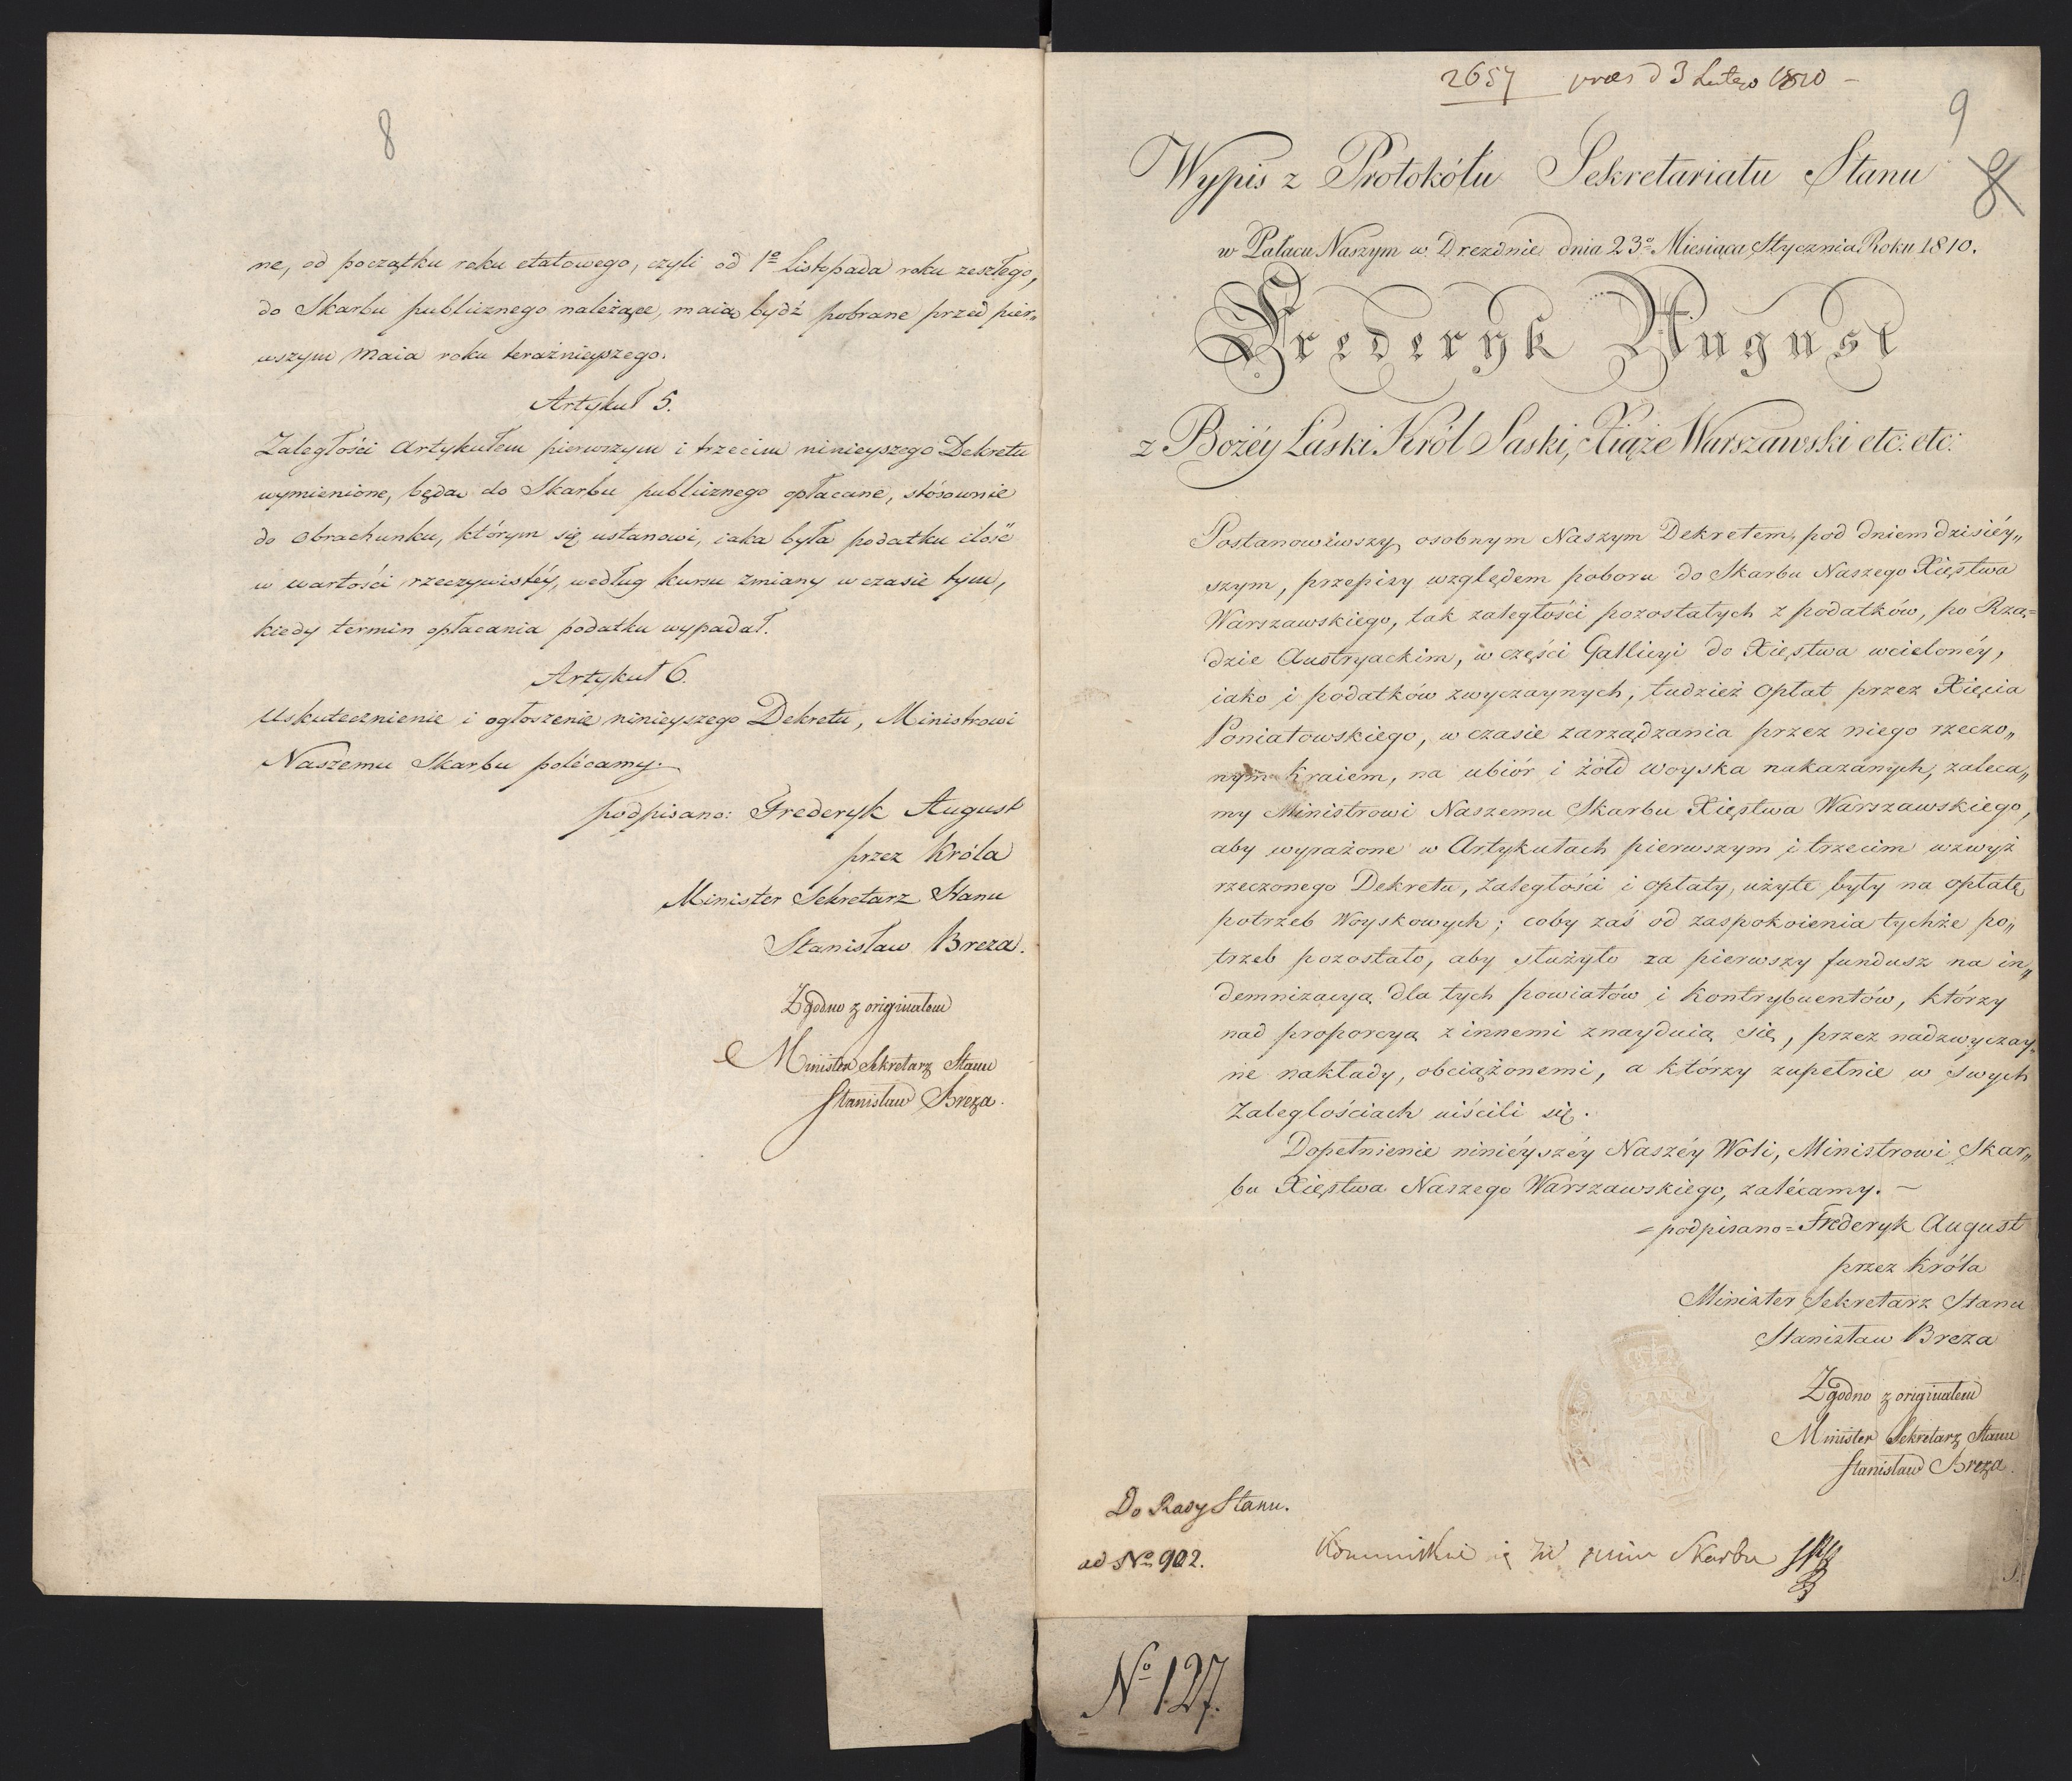 8
ne, od początku roku etatowego, czyli od 1º Listopada roku zeszłego,
do Skarbu publicznego należące, maią bydź pobrane przed pier„
wszym Maia roku teraźnieyszego.
Artykuł 5.
Zaległości Artykułem pierwszym i trzecim ninieyszego Dekretu
wymienione, będą do Skarbu publicznego opłacane, stósownie
do obrachunku, którym się ustanowi, iaka była podatku ilość
w wartości rzeczywistéy, według kursu zmiany w czasie tym,
kiedy termin opłacania podatku wypadał.
Artykuł 6.
Uskutecznienie i ogłoszenie ninieyszego Dekretu, Ministrowi
Naszemu Skarbu polécamy.
podpisano: Frederyk August
przez Króla
Minister Sekretarz Stanu
Stanisław Breza.
Zgodno z originałem
Minister Sekretarz Stanu
Stanisław Breza.
2657 praes d 3 Lutego 1810 –
9
8
Wypis z Protokółu Sekretariatu Stanu
w Pałacu Naszym w Dreznie dnia 23º Miesiąca Stycznia Roku 1810.
Frederyk August
z Bożéy Łaski Król Saski, Xiąże Warszawski etc: etc:
Postanowiwszy osobnym Naszym Dekretem, pod dniem dzisiéy„
szym, przepisy względem poboru do Skarbu Naszego Xięstwa
Warszawskiego, tak zaległości pozostałych z podatków, po Rzą=
dzie Austryackim, w części Gallicyi do Xięstwa wcielonéy,
iako i podatków zwyczaynych, tudzież opłat przez Xięcia
Poniatowskiego, w czasie zarządzania przez niego rzeczo„
nym Kraiem, na ubiór i żołd woyska nakazanych, zaleca„
my Ministrowi Naszemu Skarbu Xięstwa Warszawskiego,
aby wyrażone w Artykułach pierwszym i trzecim wzwyż
rzeczonego Dekretu, zaległości i opłaty, użyte były na opłatę
potrzeb Woyskowych; coby zaś od zaspokoienia tychże po„
trzeb pozostało, aby służyło za pierwszy fundusz na in„
demnizacyą dla tych powiatów i Kontrybuentów, którzy
nad proporcyą z innemi znayduią się, przez nadzwyczay„
ne nakłady, obciążonemi, a którzy zupełnie w swych
Zaległościach uiścili się.
Dopełnienie ninieyszéy Naszéy Woli, Ministrowi Skar„
bu Xięstwa Naszego Warszawskiego, zalécamy. –
= podpisano = Frederyk August
przez Króla
Minister Sekretarz Stanu
Stanisław Breza
Zgodno z originałem
Minister Sekretarz Stanu
Stanisław Breza.
Do Rady Stanu.
ad Nº 902.
Skarbu
Nº 127.